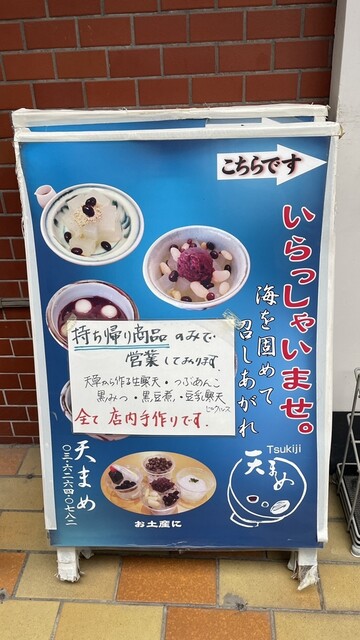 こちらです
いらっしゃいませ。
海を固めて
召しあがれ
持ち帰り商品のみで
営業しております。
天草から作る生寒天・つぶあんこ
黒みつ・黒豆煮・豆乳寒天
全て店内手作りです。
天まめ
〇三・六二二六四・〇七八二
Tsukiji
天まめ
お土産に